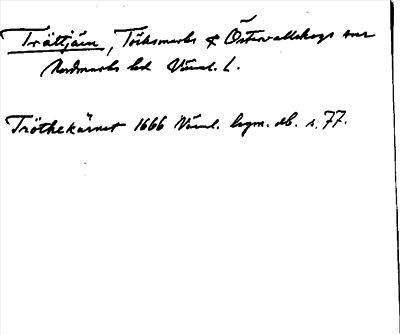 Trättjärn, Töcksmarks & Östervallskogs snr
Nordmarks hd Värml. L.
Tröthekärnet 1666 Värml. bygn. db. s. 77.